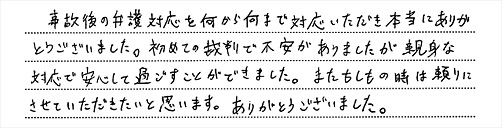 事故後の弁護対応を何から何まで対応いただき本当にありが
とうございました。初めての裁判で不安がありましたが親身な
対応で安心して過ごすことができました。またもしもの時は頼りに
させていただきたいと思います。ありがとうございました。